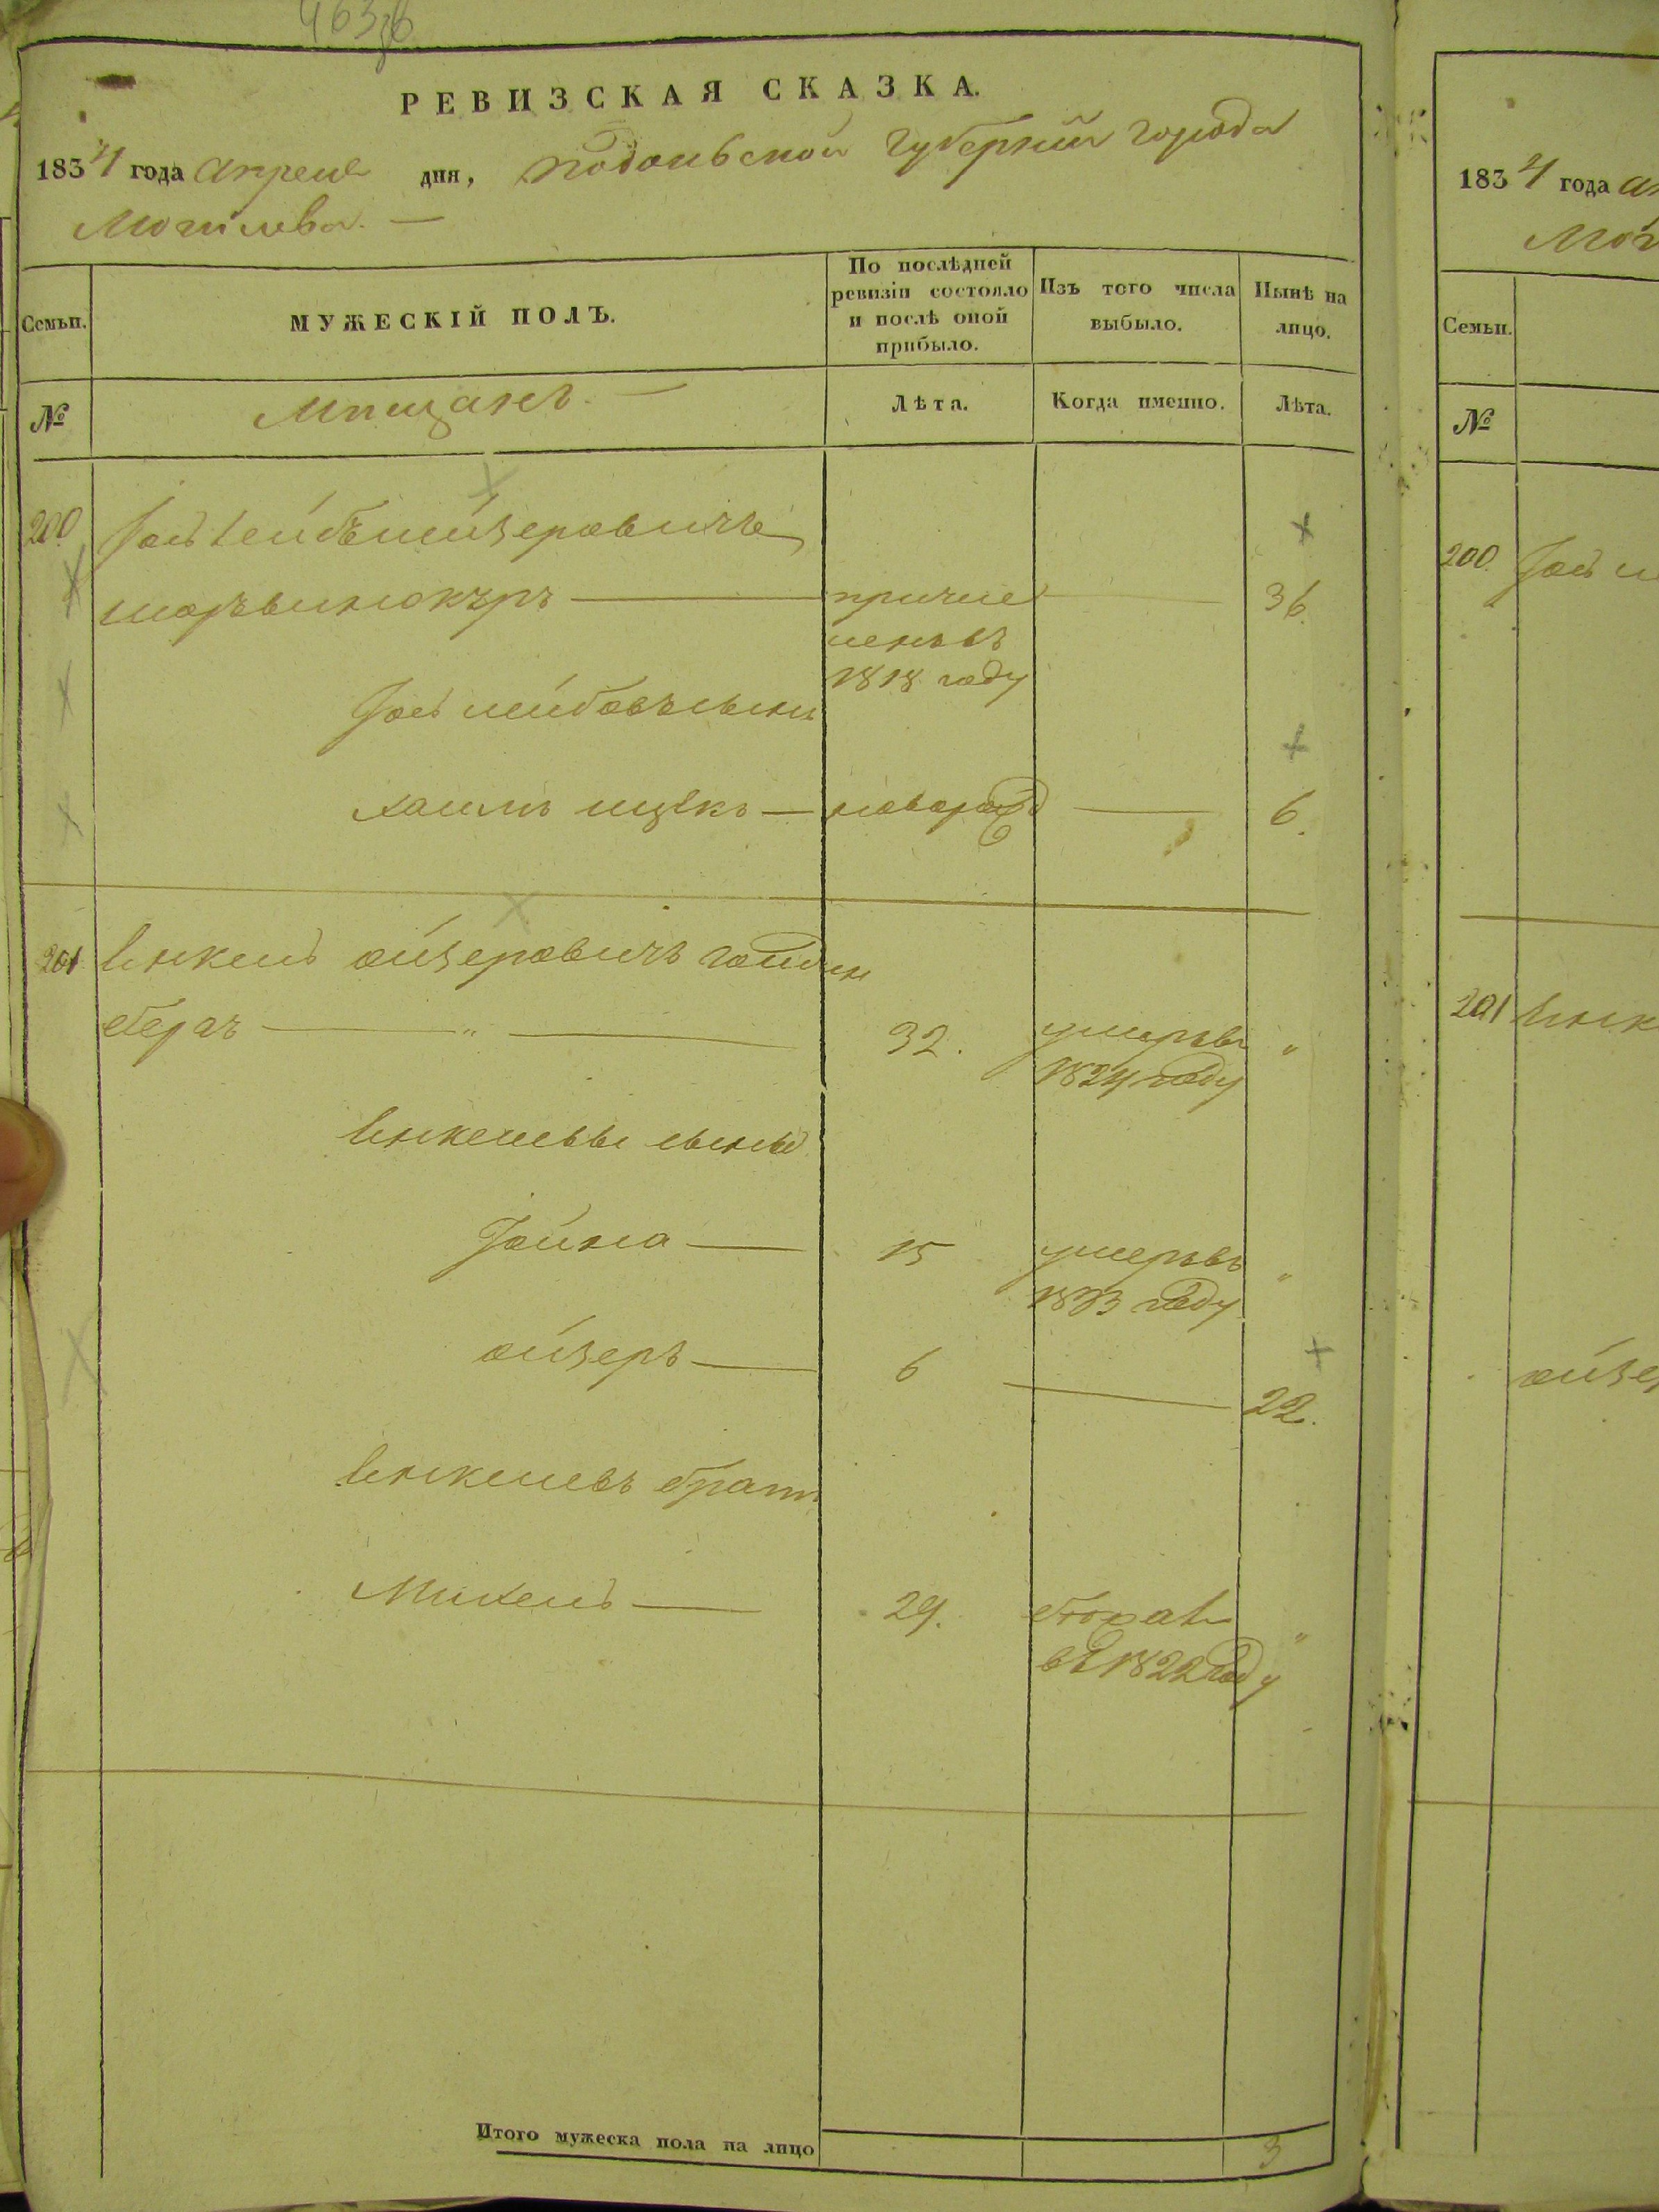 463зв
РЕВИЗСКАЯ СКАЗКА.
1834 года апреля дня, Подольской Губернии города
Могилева. —
Семьи.
МУЖЕСКІЙ ПОЛЪ.
По послѣдней ревизіи состояло и послѣ оной прибыло.
Изъ того числа выбыло.
Нынѣ на лицо.
№
Мещане. —
Лѣта.
Когда именно.
Лѣта.
200
Іось Лейбъ Лейзеровичъ
причис 36.
ленъ въ
1818 году
Іось Лейбовъ сынъ
Хаимъ Ицекъ — новорожд — 6.
201 Енкель Ойзеровичъ
32. умеръ в "
1824 году
Енкелевы сыны
Іойна — 15 умеръ въ "
году
Ойзеръ — 6 — 22.
Енкелевъ братъ
Михель — 29. "
въ 1822 году
Итого мужеска пола на лицо 3
1834 года
Семьи.
№
200. Іось
201 Енк
Ойзе